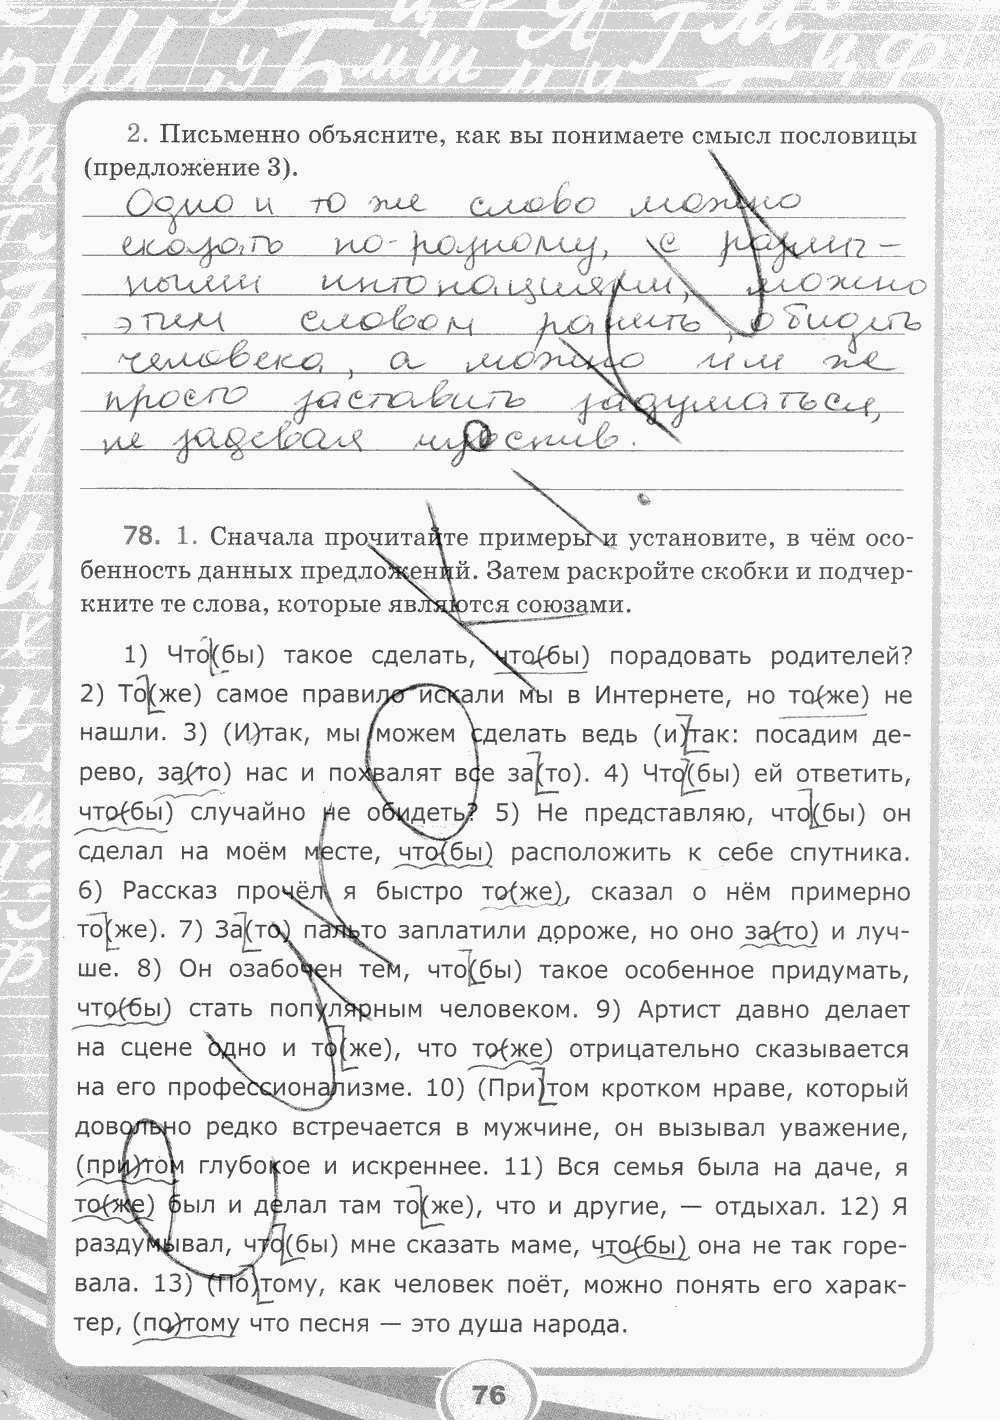 2. Письменно объясните, как вы понимаете смысл пословицы
(предложение 3).
Одно и то же слово можно
сказать по-разному, с различ-
ными интонациями, можно
этим словом ранить, обидеть
человека, а можно им же
просто заставить задуматься,
не задевая чувств.
78. 1. Сначала прочитайте примеры и установите, в чём осо-
бенность данных предложений. Затем раскройте скобки и подчер-
кните те слова, которые являются союзами.
1) Что(бы) такое сделать, что(бы) порадовать родителей?
2) То(же) самое правило искали мы в Интернете, но то(же) не
нашли. 3) (И)так, мы можем сделать ведь (и)так: посадим де-
рево, за(то) нас и похвалят все за(то). 4) Что(бы) ей ответить,
что(бы) случайно не обидеть? 5) Не представляю, что(бы) он
сделал на моём месте, что(бы) расположить к себе спутника.
6) Рассказ прочёл я быстро то(же), сказал о нём примерно
то(же). 7) За(то) пальто заплатили дороже, но оно за(то) и луч-
ше. 8) Он озабочен тем, что(бы) такое особенное придумать,
что(бы) стать популярным человеком. 9) Артист давно делает
на сцене одно и то(же), что то(же) отрицательно сказывается
на его профессионализме. 10) (При)том кротком нраве, который
довольно редко встречается в мужчине, он вызывал уважение,
(при)том глубокое и искреннее. 11) Вся семья была на даче, я
то(же) был и делал там то(же), что и другие, — отдыхал. 12) Я
раздумывал, что(бы) мне сказать маме, что(бы) она не так горе-
вала. 13) (По)тому, как человек поёт, можно понять его харак-
тер, (по)тому что песня — это душа народа.
76